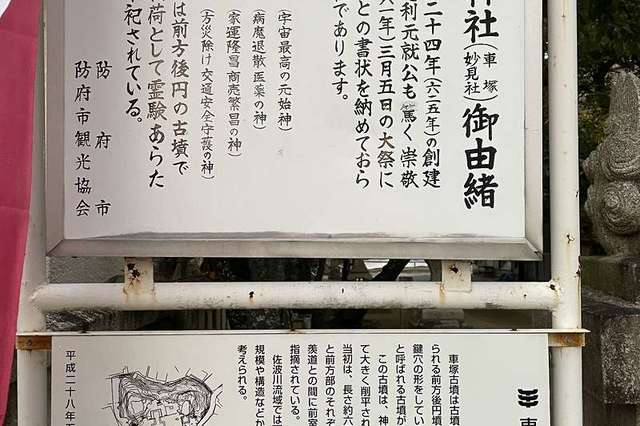 神社(車塚妙見社)御由緒
二十四年(六二五年)の創建
利元就公も篤く崇敬
六年)三月五日の大祭に
との書状を納めておら
であります。
(宇宙最高の元始神)
(病魔退散 医薬の神)
(家運隆昌 商売繁昌の神)
(方災除け 交通安全守護の神)
は前方後円の古墳で
稲荷として霊験あらた
祀されている。
防府市
防府市観光協会
車
車塚古墳は古墳
られる前方後円墳
鍵穴の形をしてい
と呼ばれる古墳が
この古墳は、神
て大きく削平され
当初は、長さ約六
と前方部のそれぞ
羨道との間に前室
指摘されている。
佐波川流域では
規模や構造などか
考えられる。
平成二十八年